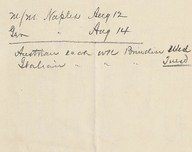 M/M Naples Aug 12
Gen " Aug 14
Austrian each wk Brindisi Wed
Italian " " " Tuesd